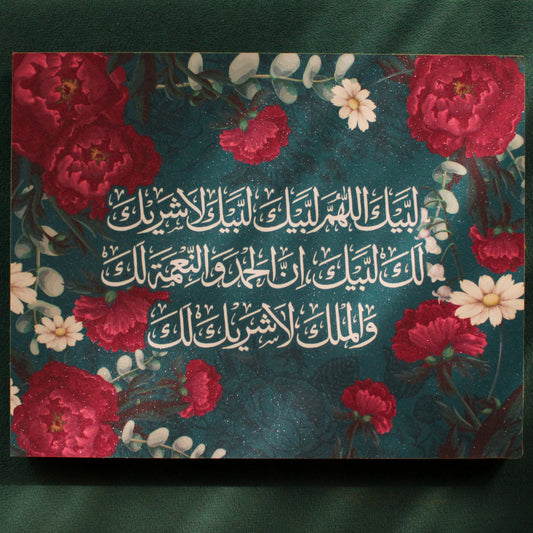 لَبَّيْكَ اللّٰهُمَّ لَبَّيْكَ لَبَّيْكَ لَا شَرِيكَ
لَكَ لَبَّيْكَ، إِنَّ الْحَمْدَ وَالنِّعْمَةَ لَكَ
وَالْمُلْكَ لَا شَرِيكَ لَكَ